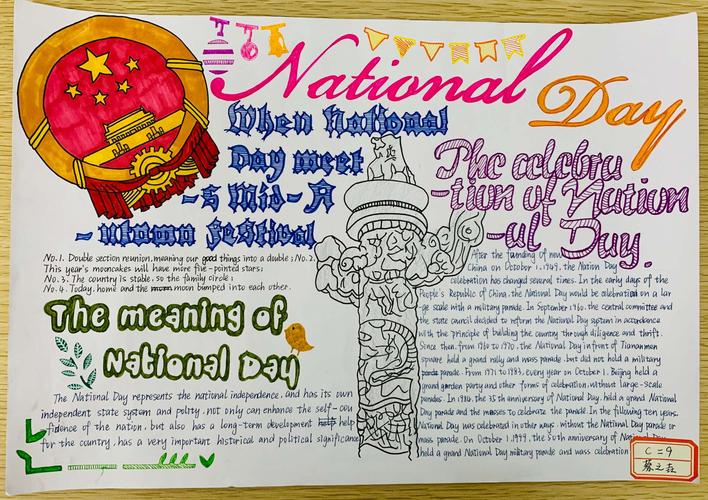 National
Day
When National
Day meet
-s Mid-A
-utumn festival
The celebra
-tion of Nation
-al Day.
No.1. Double section reunion, meaning our good things into a double; No.2.
This year's mooncakes will have more five-pointed stars;
No.3. The country is stable, so the family circle;
No.4. Today, home and the moon bumped into each other.
The meaning of
National Day
The National Day represents the national independence, and has its own
independent state system and polity, not only can enhance the self-con
fidence of the nation, but also has a long-term development help
for the country, has a very important historical and political significance
After the founding of new
China on October 1, 1949, the Nation Day
celebration has changed several times. In the early days of the
People's Republic of China, the National Day would be celebration on a lar
-ge scale with a military parade. In September 1960, the central committee and
the state council decided to reform the National Day system in accordance
with the principle of building the country through diligence and thrift.
Since then, from 1960 to 1970, the National Day in front of Tiananmen
square held a grand rally and mass parade, but did not hold a military
parade. From 1971 to 1983, every year on October 1, Beijing held a
grand garden party and other forms of celebration, without large-scale
parades. In 1984, the 35th anniversary of National Day, held a grand National
Day parade and the masses to celebrate the parade. In the following ten years,
National Day was celebrated in other ways, without the National Day parade or
mass parade. On October 1, 1999, the 50th anniversary of National Day
held a grand National Day military parade and mass celebration
C=9